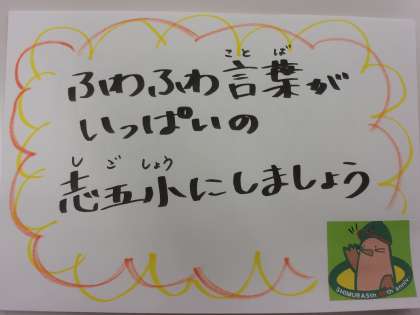 ことば
ふわふわ言葉が
いっぱいの
しごしょう
志五小にしましょう
SHIMURA5th